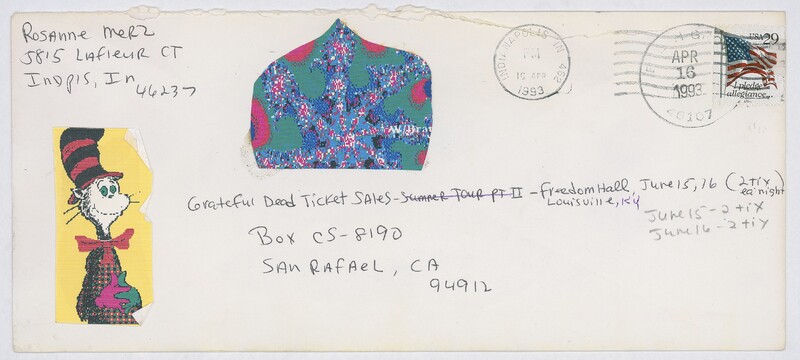 Rosanne Merz
5815 Lafleur CT
Indpls, In
46237
INDIANAPOLIS IN 462
PM
15 APR
1993
APR
16
1993
46107
USA 29
I pledge
allegiance...
Grateful Dead Ticket Sales - Summer Tour PT II - Freedom Hall, June 15, 16 (2 tix
ea night)
Louisville, Ky
June 15 - 2 tix
June 16 - 2 tix
Box CS-8190
San Rafael, CA
94912